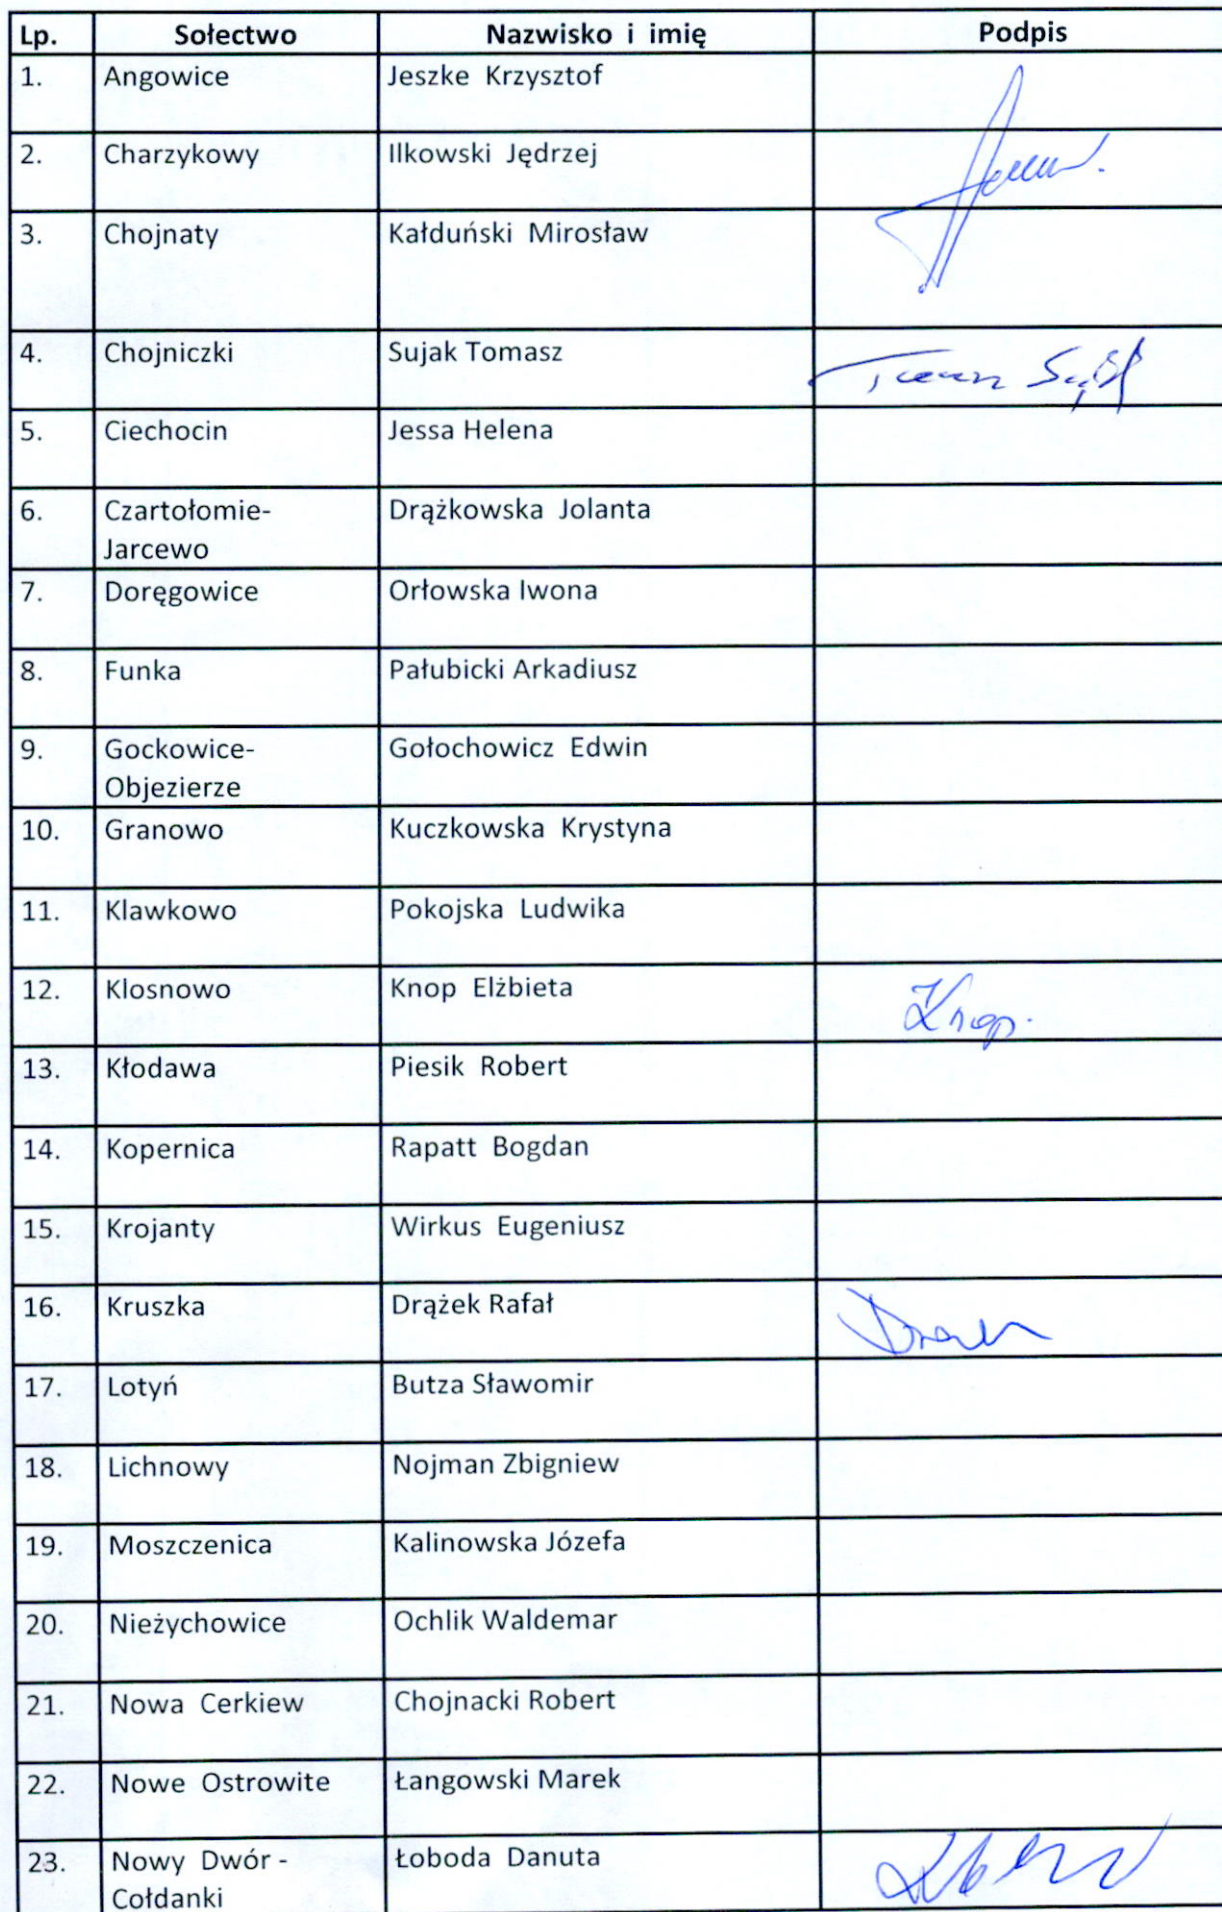 Lp. Sołectwo Nazwisko i imię Podpis
1. Angowice Jeszke Krzysztof
2. Charzykowy Ilkowski Jędrzej
3. Chojnaty Kałduński Mirosław
4. Chojniczki Sujak Tomasz
5. Ciechocin Jessa Helena
6. Czartołomie- Drążkowska Jolanta
Jarcewo
7. Doręgowice Orłowska Iwona
8. Funka Pałubicki Arkadiusz
9. Gockowice- Gołochowicz Edwin
Objezierze
10. Granowo Kuczkowska Krystyna
11. Klawkowo Pokojska Ludwika
12. Klosnowo Knop Elżbieta Knop.
13. Kłodawa Piesik Robert
14. Kopernica Rapatt Bogdan
15. Krojanty Wirkus Eugeniusz
16. Kruszka Drążek Rafał
17. Lotyń Butza Sławomir
18. Lichnowy Nojman Zbigniew
19. Moszczenica Kalinowska Józefa
20. Nieżychowice Ochlik Waldemar
21. Nowa Cerkiew Chojnacki Robert
22. Nowe Ostrowite Łangowski Marek
23. Nowy Dwór - Łoboda Danuta
Cołdanki